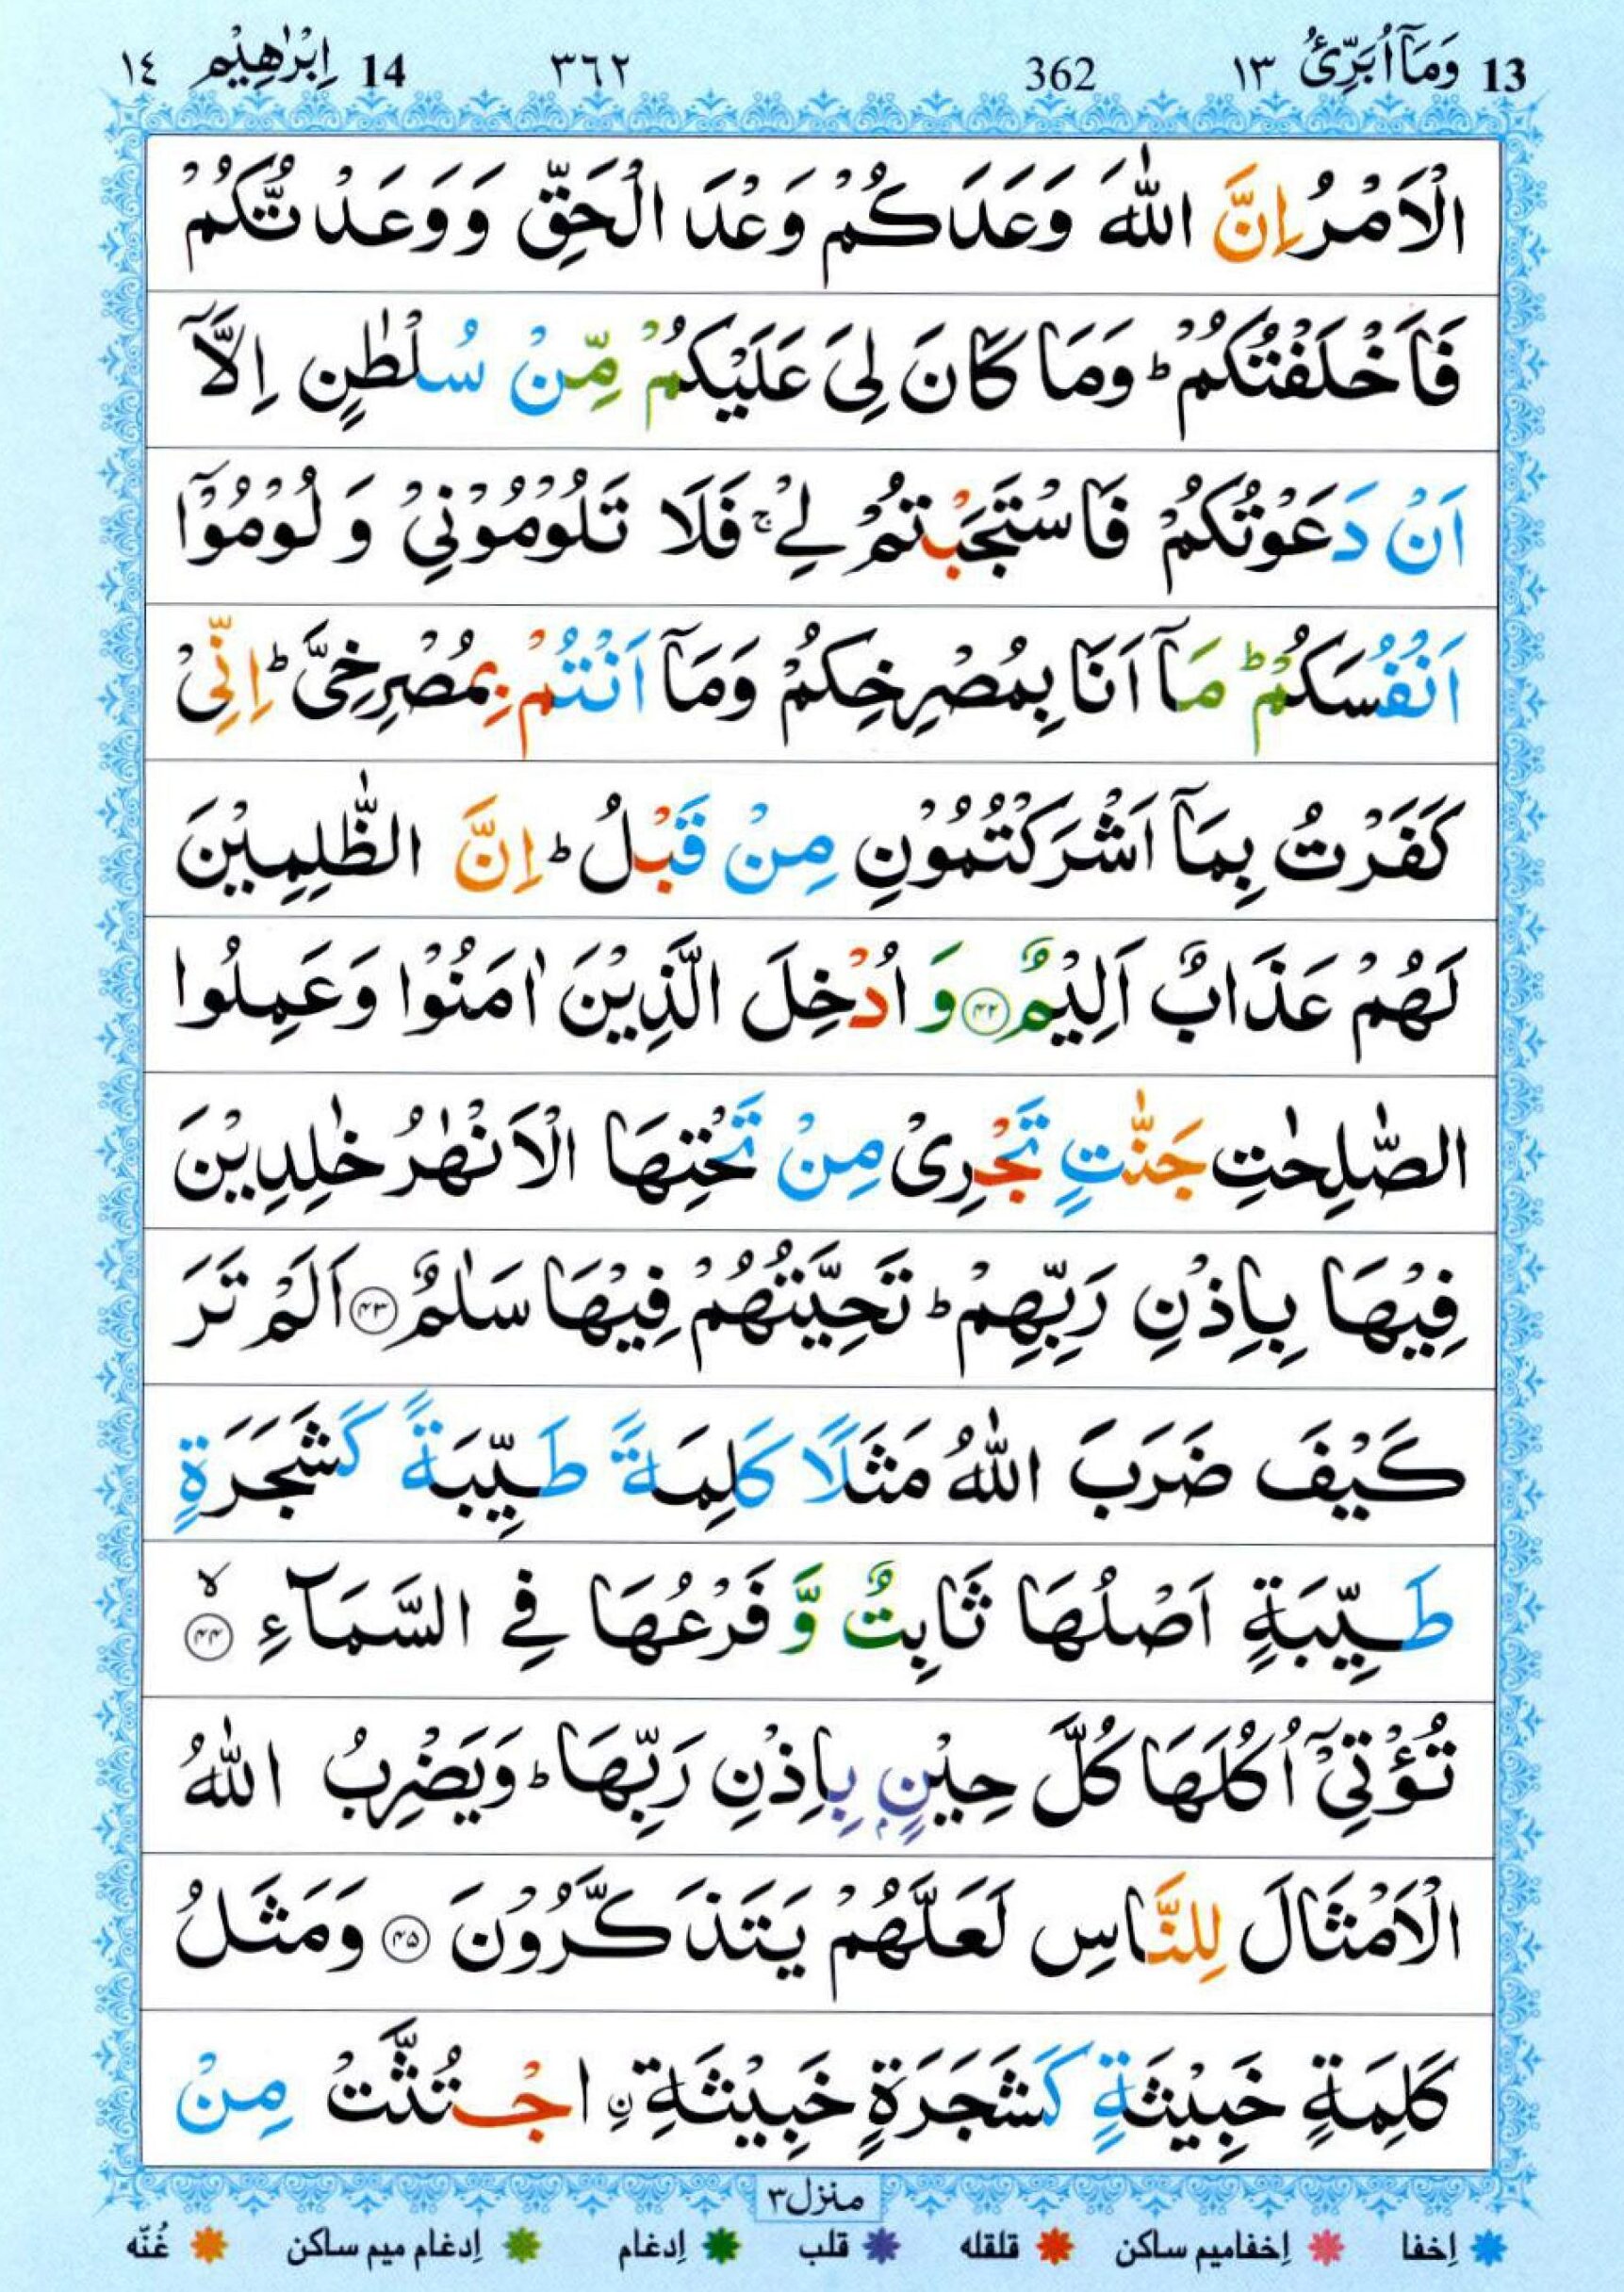 13 وَمَآ اُبَرِّئُ ١٣ 362 ٣٦٢ 14 اِبْرٰهِيْم ١٤
الْاَمْرُ اِنَّ اللّٰهَ وَعَدَكُمْ وَعْدَ الْحَقِّ وَوَعَدْتُّكُمْ
فَاَخْلَفْتُكُمْ ؕ وَمَا كَانَ لِىَ عَلَيْكُمْ مِّنْ سُلْطٰنٍ اِلَّاۤ
اَنْ دَعَوْتُكُمْ فَاسْتَجَبْتُمْ لِىْ ۚ فَلَا تَلُوْمُوْنِىْ وَ لُوْمُوْۤا
اَنْفُسَكُمْ ؕ مَاۤ اَنَا بِمُصْرِخِكُمْ وَمَاۤ اَنْتُمْ بِمُصْرِخِىَّ ؕ اِنِّىْ
كَفَرْتُ بِمَاۤ اَشْرَكْتُمُوْنِ مِنْ قَبْلُ ؕ اِنَّ الظّٰلِمِيْنَ
لَهُمْ عَذَابٌ اَلِيْمٌ ﴿۲۲﴾ وَ اُدْخِلَ الَّذِيْنَ اٰمَنُوْا وَعَمِلُوا
الصّٰلِحٰتِ جَنّٰتٍ تَجْرِىْ مِنْ تَحْتِهَا الْاَنْهٰرُ خٰلِدِيْنَ
فِيْهَا بِاِذْنِ رَبِّهِمْ ؕ تَحِيَّتُهُمْ فِيْهَا سَلٰمٌ ﴿۲۳﴾ اَلَمْ تَرَ
كَيْفَ ضَرَبَ اللّٰهُ مَثَلًا كَلِمَةً طَيِّبَةً كَشَجَرَةٍ
طَيِّبَةٍ اَصْلُهَا ثَابِتٌ وَّ فَرْعُهَا فِى السَّمَآءِ ۙ ﴿۲۴﴾
تُؤْتِىْۤ اُكُلَهَا كُلَّ حِيْنٍۭ بِاِذْنِ رَبِّهَا ؕ وَيَضْرِبُ اللّٰهُ
الْاَمْثَالَ لِلنَّاسِ لَعَلَّهُمْ يَتَذَكَّرُوْنَ ﴿۲۵﴾ وَمَثَلُ
كَلِمَةٍ خَبِيْثَةٍ كَشَجَرَةٍ خَبِيْثَةِ ۨ اجْتُثَّتْ مِنْ
منزل٣
اِخفا اِخفامیم ساکن قلقله قلب اِدغام اِدغام میم ساکن غُنّه